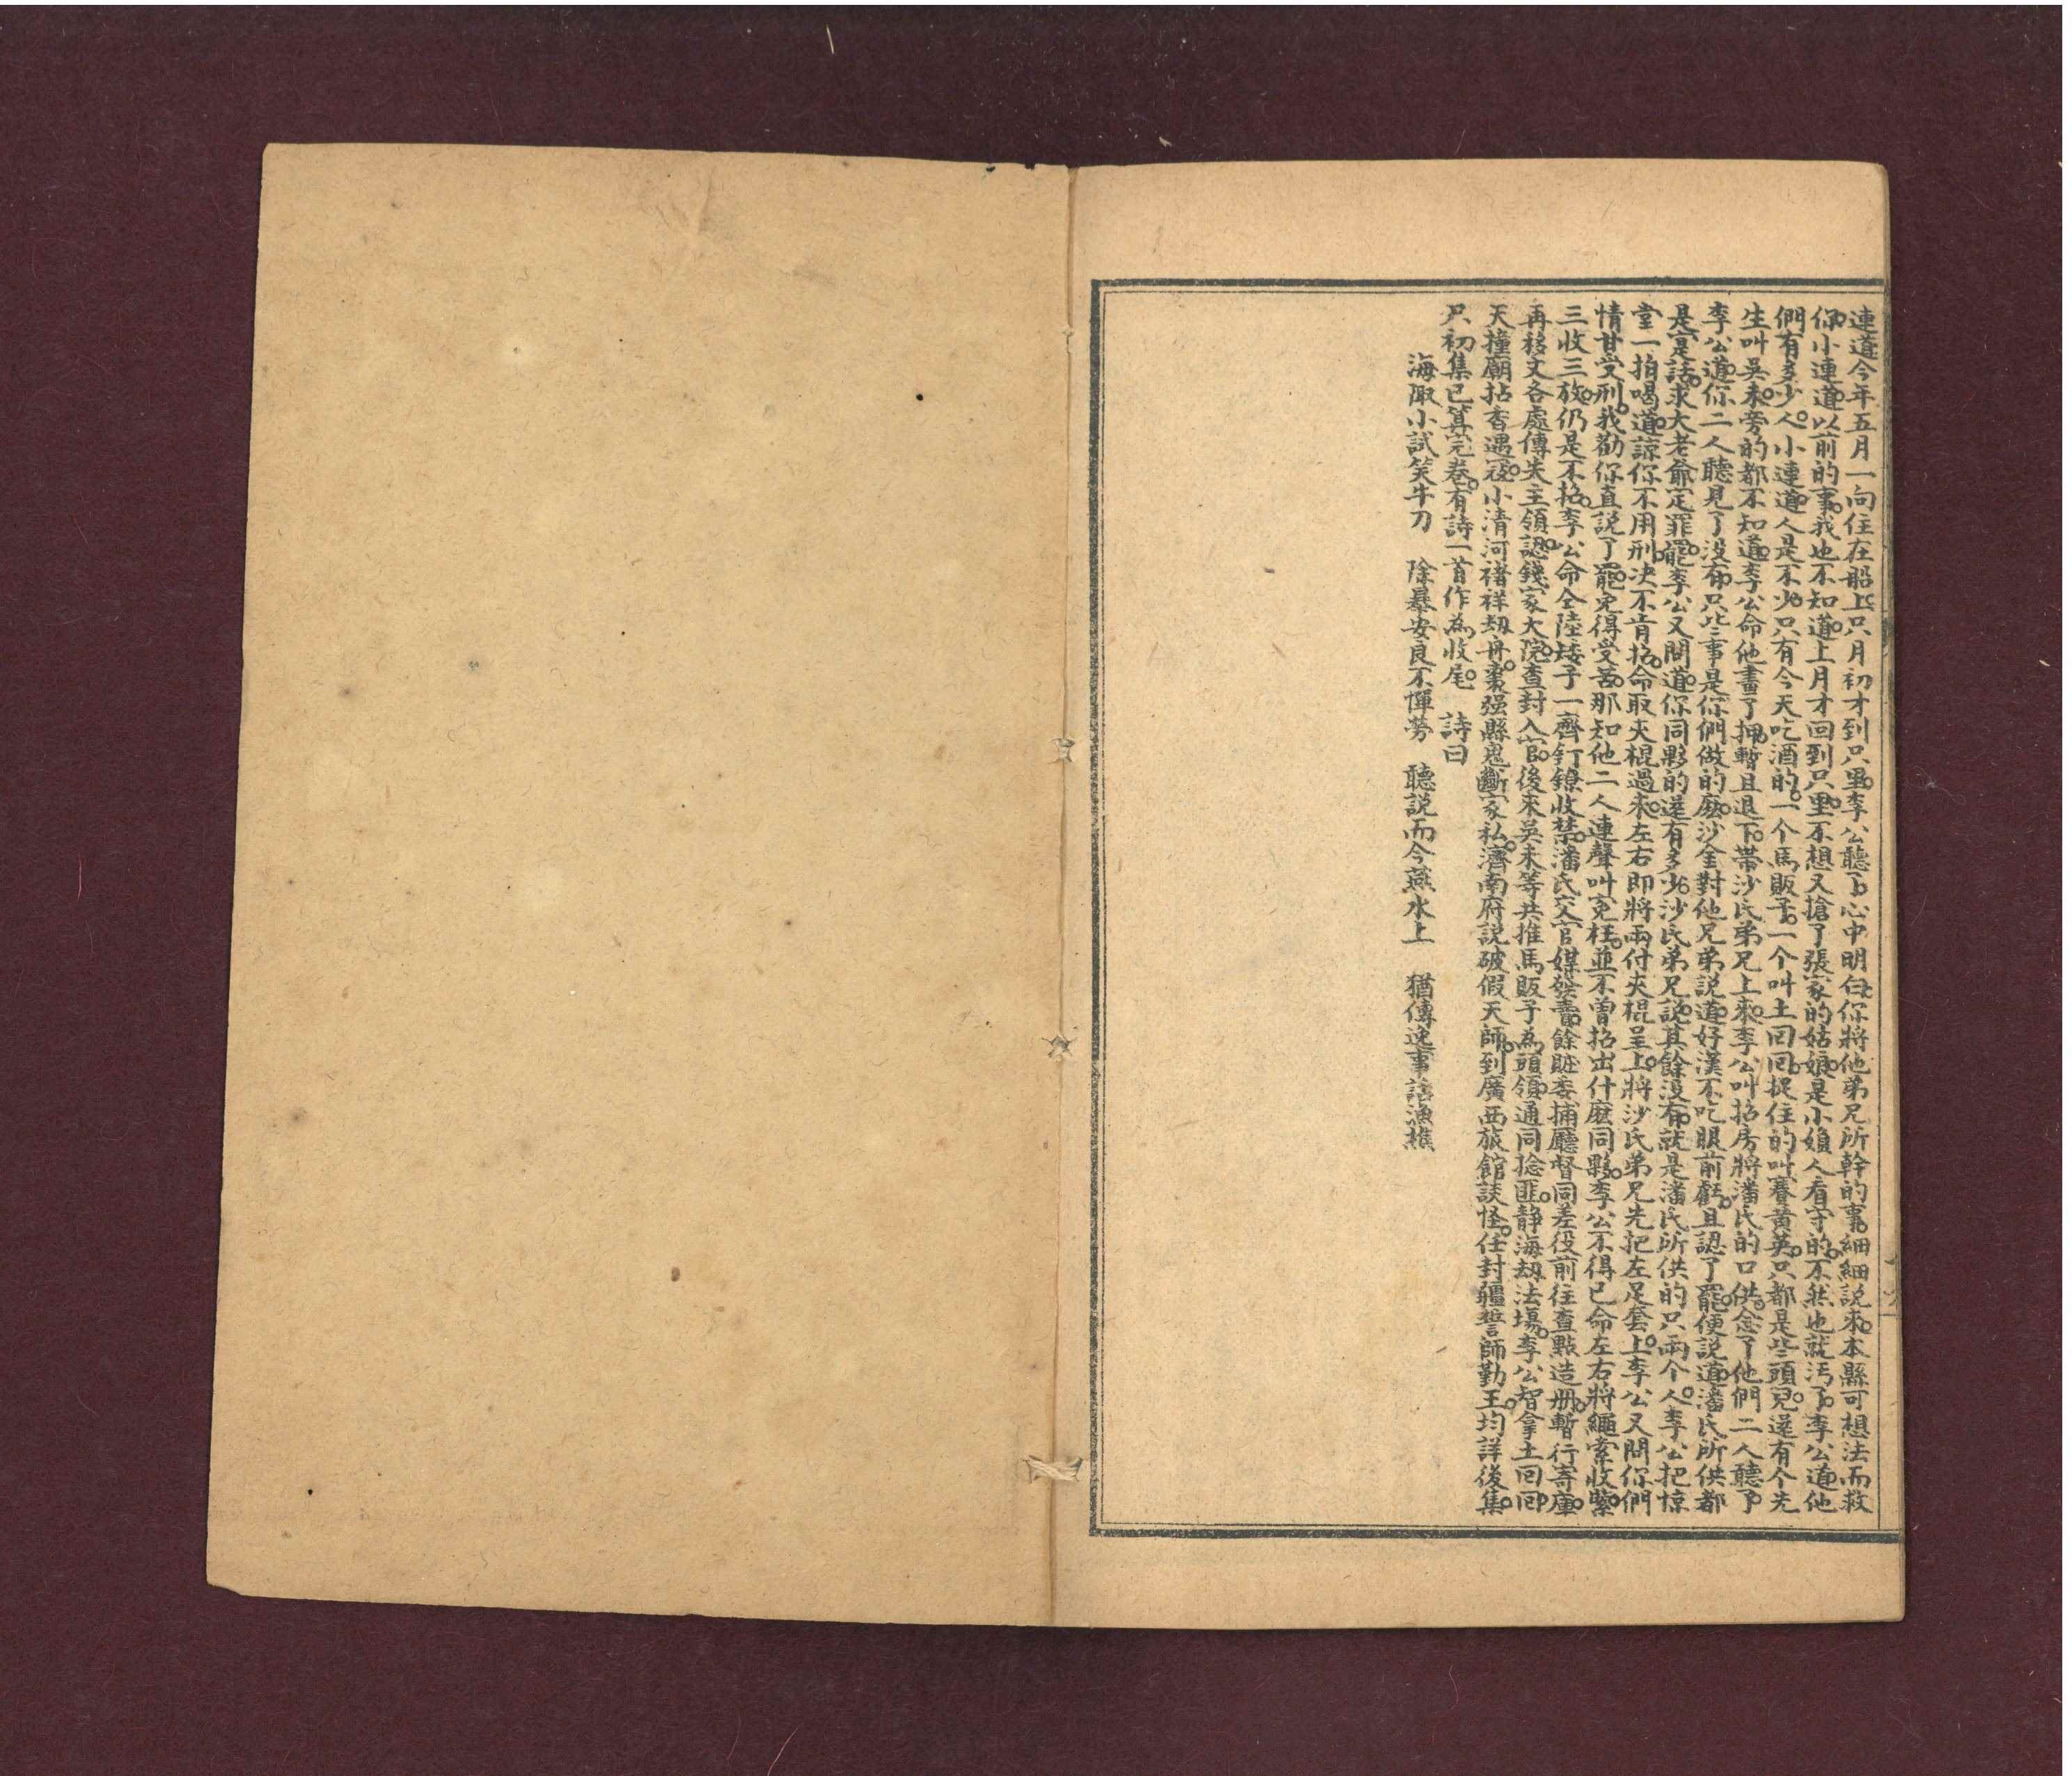 連道今年五月一向住在船上只月初才到只里李公聽了心中明白你將他弟兄所幹的事細細說來本縣可想法而救
你小連道以前的事我也不知道上月才回到只里不想又搶了張家的姑娘是小娘人看守的不然也就汚了李公道他
們有多少人小連道人是不少只有今天吃酒的一个馬販子一个叫土回回捉住的叫賽黃英只都是些頭兒還有个先
生叫吳未旁的都不知道李公命他畫了押暫且退下帶沙氏弟兄上來李公叫招房將潘氏的口供念了他們二人聽了
李公道你二人聽見了沒有只些事是你們做的麽沙金對他兄弟說道好漢不吃眼前虧且認了罷便說道潘氏所供都
是寔話求大老爺定罪罷李公又問道你同夥的還有多少沙氏弟兄說其餘沒有就是潘氏所供的只兩个人李公把惊
堂一拍喝道諒你不用刑决不肯招命取夾棍過來左右即將兩付夾棍呈上將沙氏弟兄先把左足套上李公又問你們
情甘受刑我勸你直說了罷免得受苦那知他二人連聲叫寃枉並不曾招出什麽同夥李公不得已命左右將繩索收緊
三收三放仍是不招李公命仝陸矮子一齊釘鐐收禁潘氏交官媒發賣餘賍委捕廳督同差役前往查點造册暫行寄庫
再移文各處傳失主領認錢家大院查封入官後來吳未等共推馬販子為頭領通同捻匪静海刼法塲李公智拿土回回
天撞廟拈香遇寇小清河褚祥刼舟棗强縣鬼斷家私濟南府説破假天師到廣西旅館談怪任封疆誓師勤王均詳後集
只初集已算完卷有詩一首作為收尾　詩曰
海陬小試笑牛刀　除暴安良不憚勞　聽説而今燕水上　猶傳逸事話漁樵